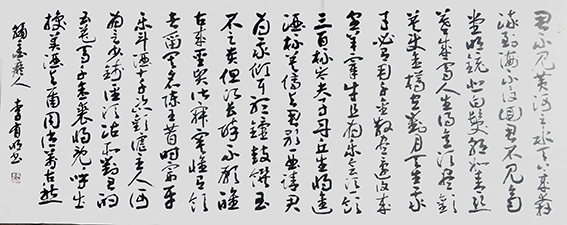 君不见黄河之水天上来奔
流到海不复回君不见高
堂明镜悲白发朝如青丝
暮成雪人生得意须尽欢
莫使金樽空对月天生我
才必有用千金散尽还复来
烹羊宰牛且为乐会须一饮
三百杯岑夫子丹丘生将进
酒杯莫停与君歌一曲请君
为我倾耳听钟鼓馔玉
不足贵但愿长醉不愿醒
古来圣贤皆寂寞惟有饮
者留其名陈王昔时宴平
乐斗酒十千恣欢谑主人何
为言少钱径须沽取对君酌
五花马千金裘呼儿将出
换美酒与尔同销万古愁